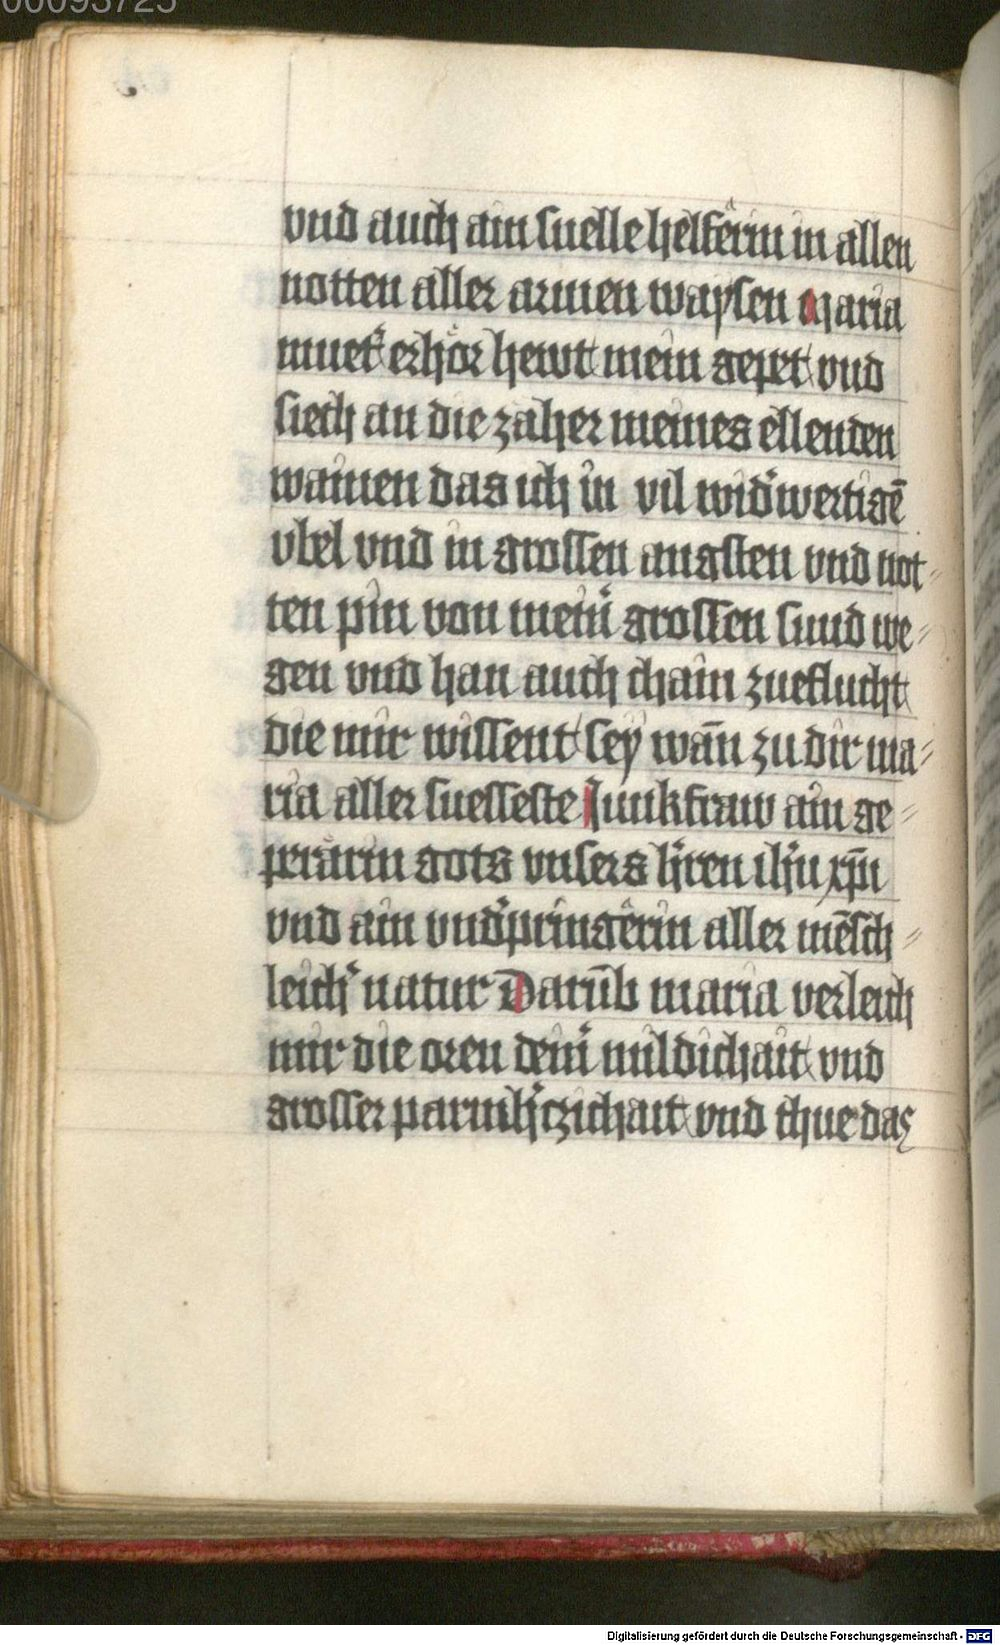 00093725
vnd auch ain snelle helferin in allen
notten aller armen waysen Maria
muet̛ erhör hewt mein gepet vnd
siech an die zäher meines ellenden
wainen das ich in vil wid̛wertigē
vbel vnd in grossen angsten vnd not⸗
ten pin von mein̛ grossen sund we⸗
gen vnd han auch chain zueflucht
die mir wissent sey wān zu dir ma⸗
ria aller suesseste Junkfraw ain ge⸗
perärin gots vnsers h̛ren ih̄u xp̄i
vnd ain vnd̛pringerin aller mēsch⸗
leich̛ natur Darūb maria verleich
mir die oren dein̛ mildichait vnd
grosser parmh̛czichait vnd thue das
Digitalisierung gefördert durch die Deutsche Forschungsgemeinschaft - DFG